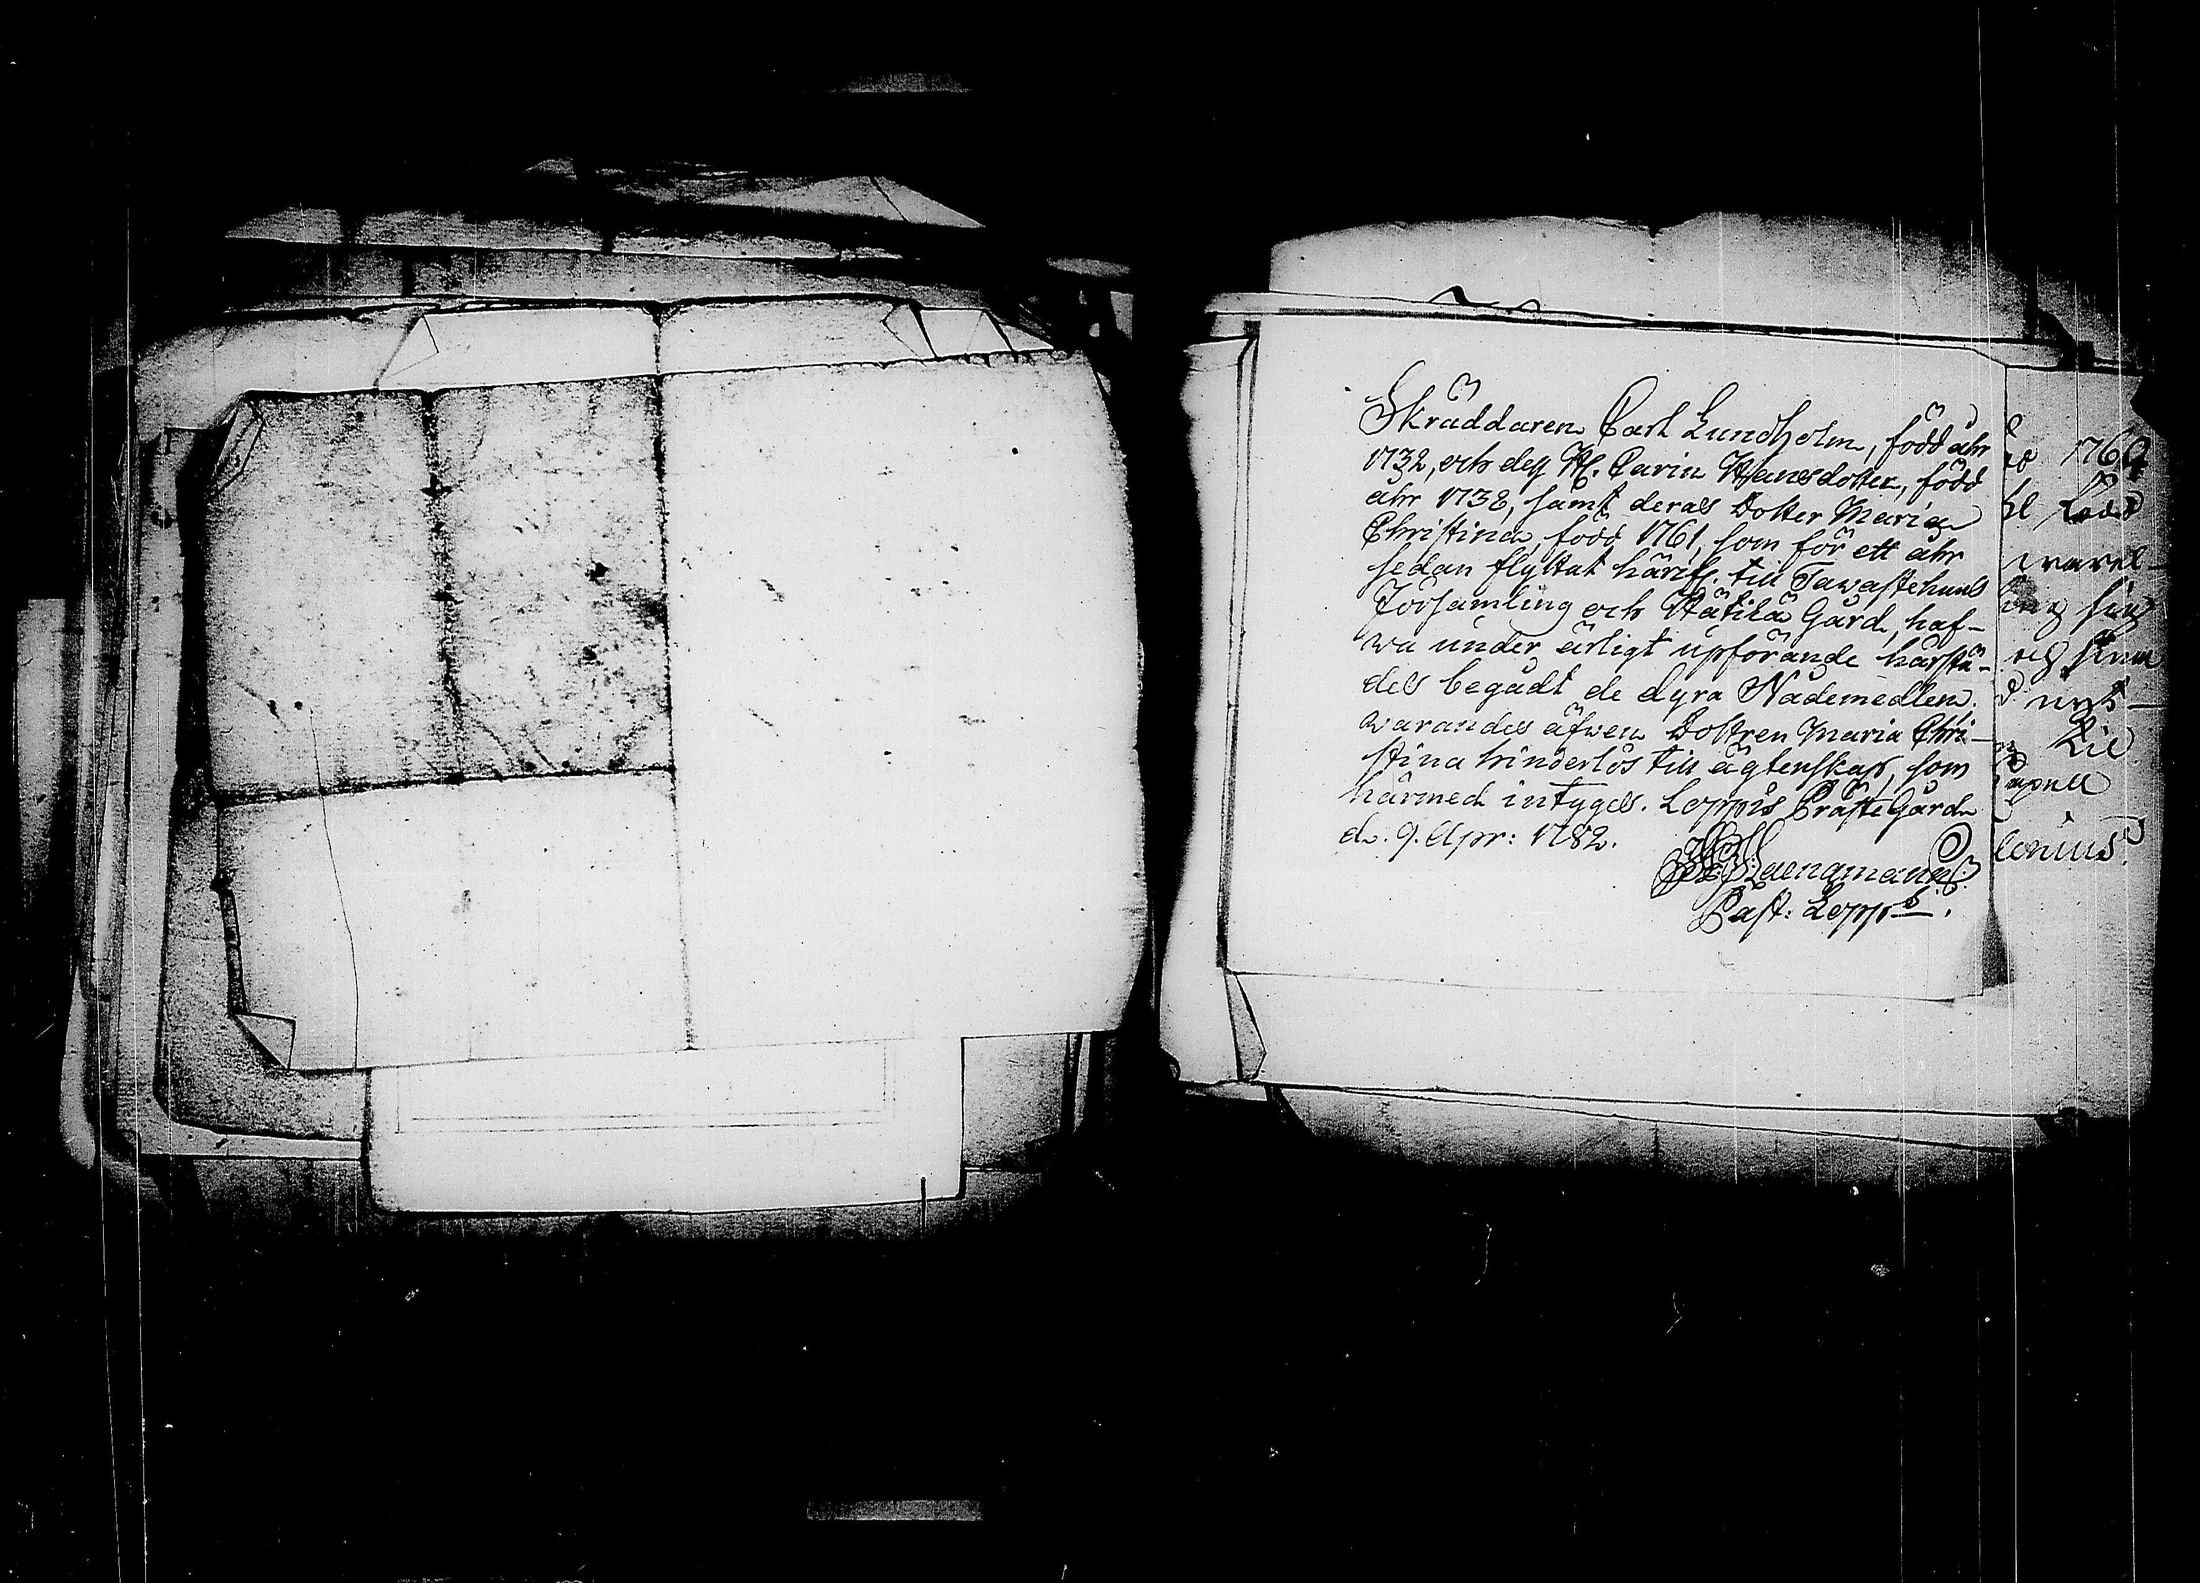 Skräddaren Carl Lundholm, född åhr
1732, och dess H. Carin Hansdotter, född
åhr 1738, samt deras Dotter Maria
Christina, född 1761, som för ett åhr
sedan flyttat härifr. till Tawastehuus
Församling och Hätilä Gård, haf-
wa under ärligt upförande härstä-
des begådt de dyra Nådemedlen.
warandes äfwen Dottren Maria Chri-
stina hinderlös till ägtenskap, som
härmed intygas. Loppis Präste Gård
d. 9. Apr: 1782.
Past: Lopp
176
lonius.